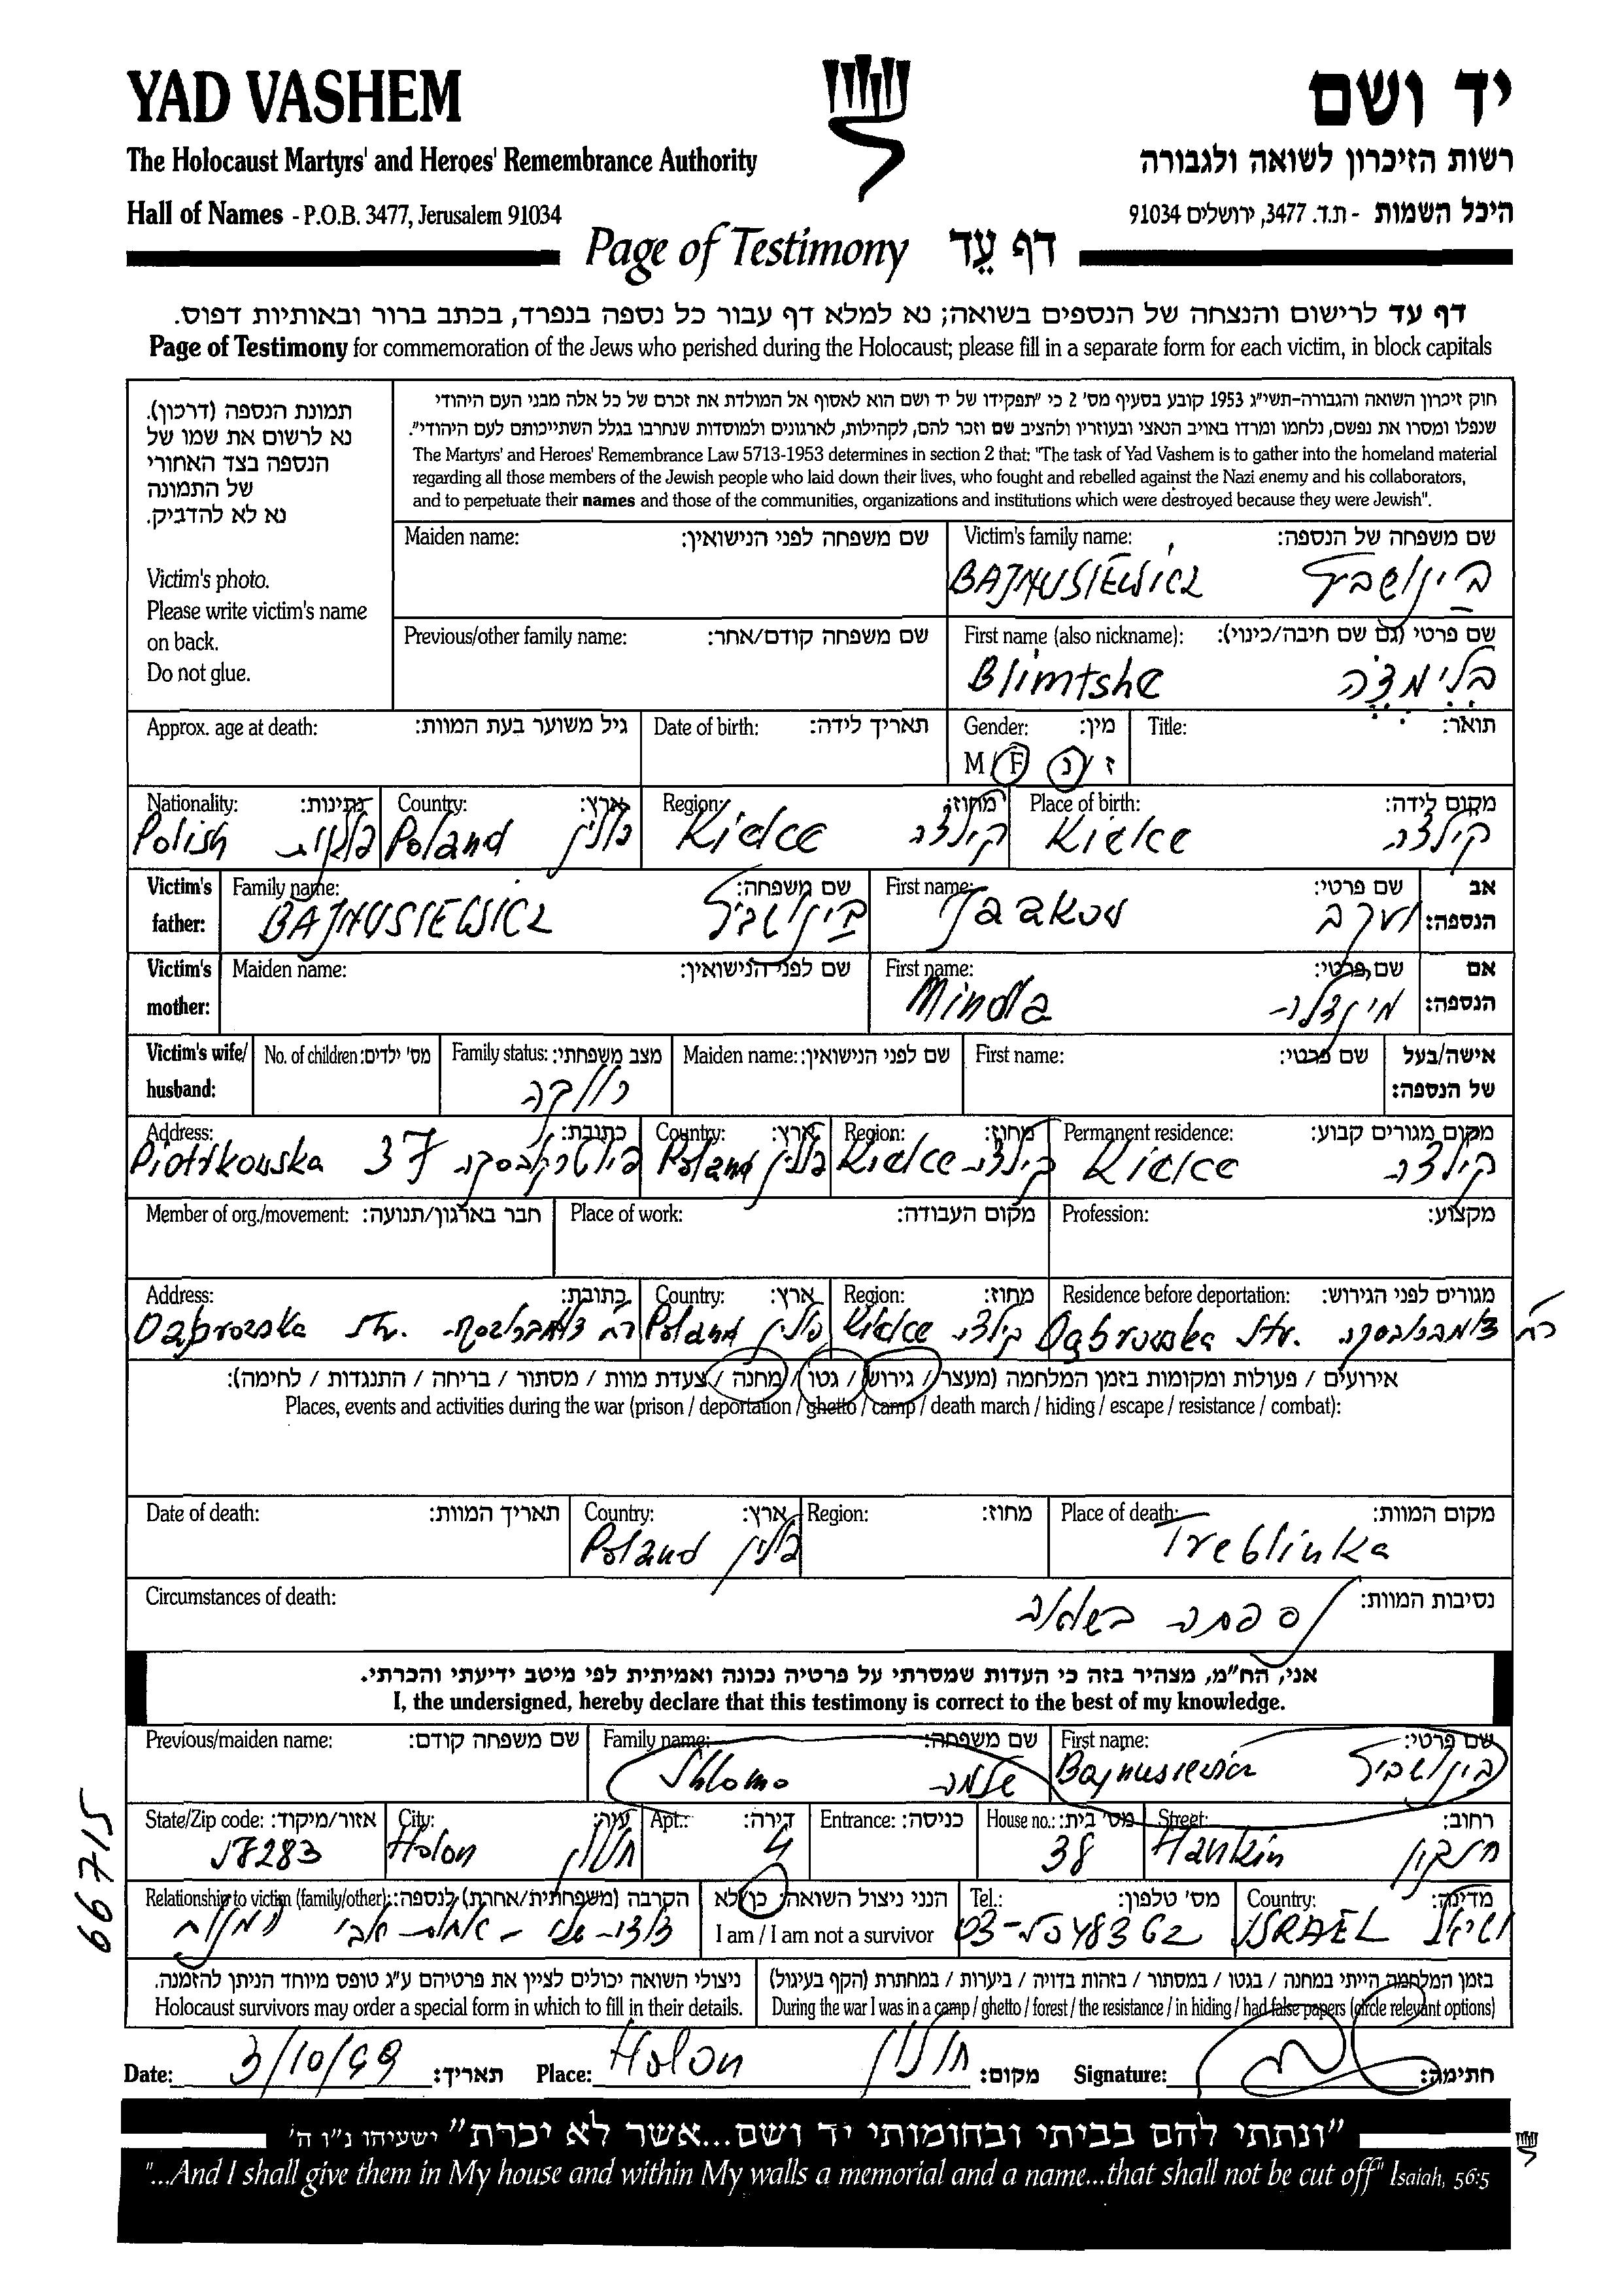 YAD VASHEM
יד ושם
The Holocaust Martyrs' and Heroes' Remembrance Authority
רשות הזיכרון לשואה ולגבורה
Hall of Names - P.O.B. 3477, Jerusalem 91034
היכל השמות - ת.ד. 3477, ירושלים 91034
Page of Testimony דף עֵד
דף עד לרישום והנצחה של הנספים בשואה; נא למלא דף עבור כל נספה בנפרד, בכתב ברור ובאותיות דפוס.
Page of Testimony for commemoration of the Jews who perished during the Holocaust; please fill in a separate form for each victim, in block capitals
תמונת הנספה (דרכון).
נא לרשום את שמו של
הנספה בצד האחורי
של התמונה
נא לא להדביק.
Victim's photo.
Please write victim's name
on back.
Do not glue.
חוק זיכרון השואה והגבורה-תשי"ג 1953 קובע בסעיף מס' 2 כי "תפקידו של יד ושם הוא לאסוף אל המולדת את זכרם של כל אלה מבני העם היהודי
שנפלו ומסרו את נפשם, נלחמו ומרדו באויב הנאצי ובעוזריו ולהציב שם וזכר להם, לקהילות, לארגונים ולמוסדות שנחרבו בגלל השתייכותם לעם היהודי".
The Martyrs' and Heroes' Remembrance Law 5713-1953 determines in section 2 that: "The task of Yad Vashem is to gather into the homeland material
regarding all those members of the Jewish people who laid down their lives, who fought and rebelled against the Nazi enemy and his collaborators,
and to perpetuate their names and those of the communities, organizations and institutions which were destroyed because they were Jewish".
Maiden name: שם משפחה לפני הנישואין:
Victim's family name: שם משפחה של הנספה:
BAJNUSIEWICZ בינושביץ
Previous/other family name: שם משפחה קודם/אחר:
First name (also nickname): שם פרטי (גם שם חיבה/כינוי):
Blimtshe בלימצ'ה
Approx. age at death: גיל משוער בעת המוות:
Date of birth: תאריך לידה:
Gender: מין:
M / F נ / ז
Title: תואר:
Nationality: נתינות:
Polish פולנית
Country: ארץ:
Poland פולין
Region: מחוז:
Kielce קילצה
Place of birth: מקום לידה:
Kielce קילצה
Victim's father:
Family name: שם משפחה:
BAJNUSIEWICZ בינושביץ
First name: שם פרטי:
Jaakov יעקב
אב הנספה:
Victim's mother:
Maiden name: שם לפני הנישואין:
First name: שם פרטי:
Mindla מינדלה
אם הנספה:
Victim's wife/husband:
No. of children: מס' ילדים:
Family status: מצב משפחתי:
רווקה
Maiden name: שם לפני הנישואין:
First name: שם פרטי:
אישה/בעל של הנספה:
Address: כתובת:
Piotrkowska 37 פיוטרקובסקה
Country: ארץ:
Poland פולין
Region: מחוז:
Kielce קילצה
Permanent residence: מקום מגורים קבוע:
Kielce קילצה
Member of org./movement: חבר בארגון/תנועה:
Place of work: מקום העבודה:
Profession: מקצוע:
Address: כתובת:
Dąbrowska Str. רח' דומברובסקה
Country: ארץ:
Poland פולין
Region: מחוז:
Kielce קילצה
Residence before deportation: מגורים לפני הגירוש:
Dąbrowska Str. רח' דומברובסקה
אירועים / פעולות ומקומות בזמן המלחמה (מעצר / גירוש / גטו / מחנה / צעדת מוות / מסתור / בריחה / התנגדות / לחימה):
Places, events and activities during the war (prison / deportation / ghetto / camp / death march / hiding / escape / resistance / combat):
Date of death: תאריך המוות:
Country: ארץ:
Poland פולין
Region: מחוז:
Place of death: מקום המוות:
Treblinka
Circumstances of death: נסיבות המוות:
נספתה בשואה
אני, הח"מ, מצהיר בזה כי העדות שמסרתי על פרטיה נכונה ואמיתית לפי מיטב ידיעתי והכרתי.
I, the undersigned, hereby declare that this testimony is correct to the best of my knowledge.
Previous/maiden name: שם משפחה קודם:
Family name: שם משפחה:
Shlomo שלמה
First name: שם פרטי:
Bajnusiewicz בינושביץ
State/Zip code: אזור/מיקוד:
58283
City: עיר:
Holon חולון
Apt.: דירה:
4
Entrance: כניסה:
House no.: מס' בית:
38
Street: רחוב:
Hankin חנקין
Relationship to victim (family/other): הקרבה (משפחתית/אחרת) לנספה:
דודה שלי - אחות אבי
הנני ניצול השואה: כן/לא
I am / I am not a survivor
Tel.: מס' טלפון:
03-5048362
Country: מדינה:
ISRAEL ישראל
ניצולי השואה יכולים לציין את פרטיהם ע"ג טופס מיוחד הניתן להזמנה.
Holocaust survivors may order a special form in which to fill in their details.
בזמן המלחמה הייתי במחנה / בגטו / במסתור / בזהות בדויה / ביערות / במחתרת (הקף בעיגול)
During the war I was in a camp / ghetto / forest / the resistance / in hiding / had false papers (circle relevant options)
Date: 3/10/99 תאריך:
Place: Holon חולון מקום:
Signature: חתימה:
66715
"ונתתי להם בביתי ובחומותי יד ושם...אשר לא יכרת" ישעיהו נ"ו ה'
"...And I shall give them in My house and within My walls a memorial and a name...that shall not be cut off" Isaiah, 56:5